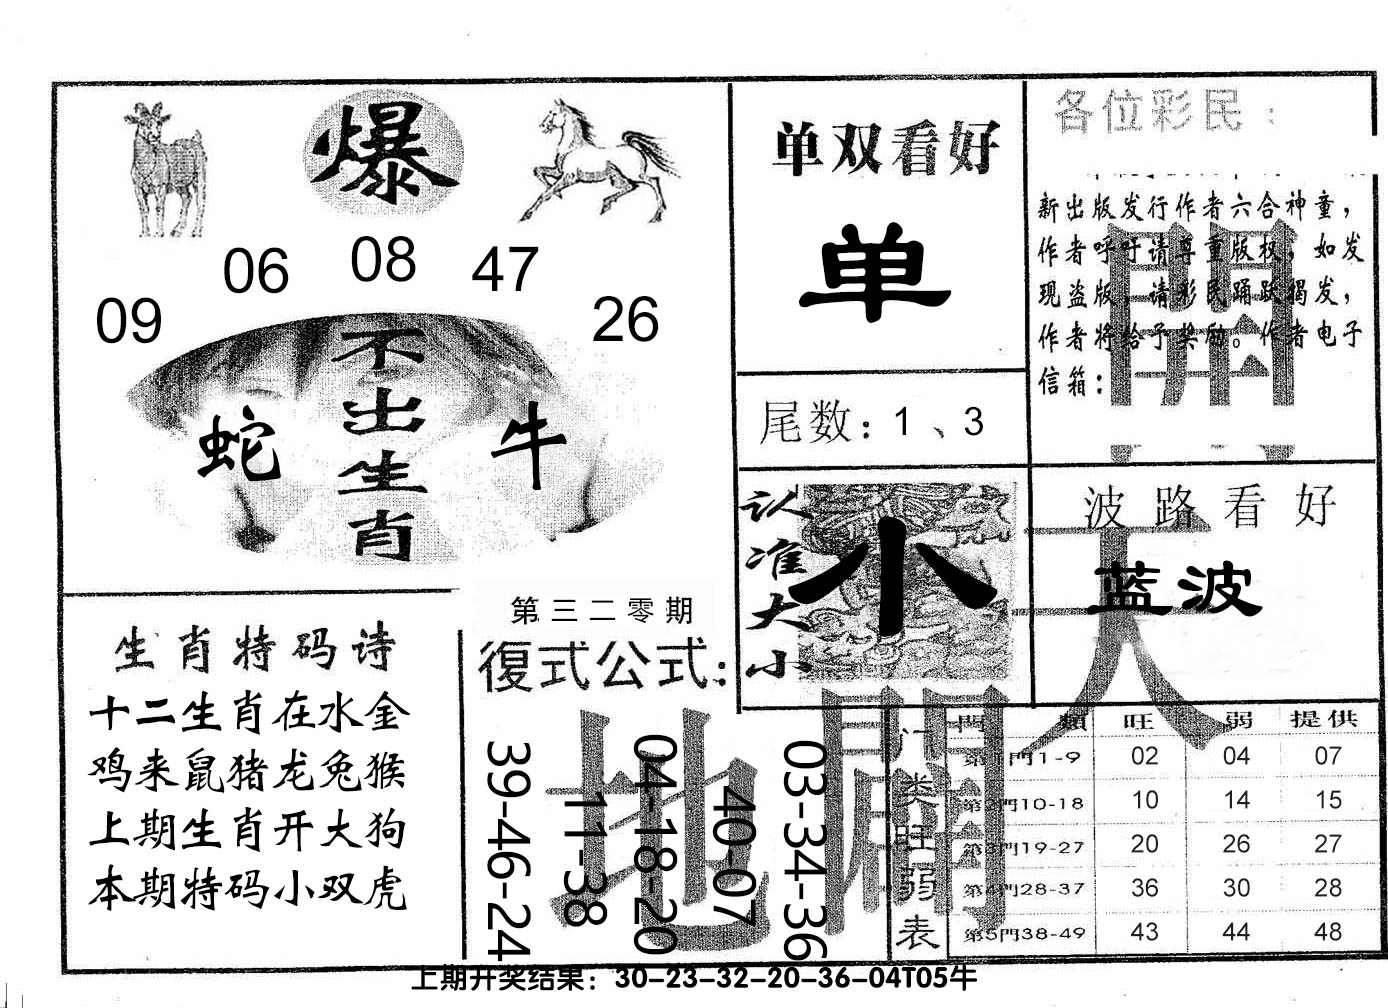 爆
09
06
08
47
26
不出生肖
蛇
牛
单双看好
单
尾数：1、3
认准大小
小
各位彩民：
新出版发行作者六合神童，
作者呼吁请尊重版权，如发
现盗版，请彩民踊跃揭发，
作者将给予奖励。作者电子
信箱：
波路看好
蓝波
生肖特码诗
十二生肖在水金
鸡来鼠猪龙兔猴
上期生肖开大狗
本期特码小双虎
第三二零期
復式公式：
39-46-24
11-38
04-18-20
40-07
03-34-36
天
地
門类旺弱表
門類 旺 弱 提供
第1門1-9 02 04 07
第2門10-18 10 14 15
第3門19-27 20 26 27
第4門28-37 36 30 28
第5門38-49 43 44 48
上期开奖结果：30-23-32-20-36-04T05牛